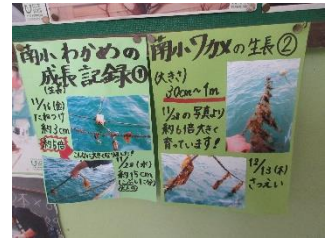 南小わかめの
成長記録①
(生長)
11/16(金)
たねつけ
約3cm
約5倍
こんなに大きくなりました!
11/28(水)
約15cm
南小ワカメの生長②
(大きさ)
30cm〜1m
11/28の写真より
約6倍大きく
育っています!
12/13(木)
さつえい